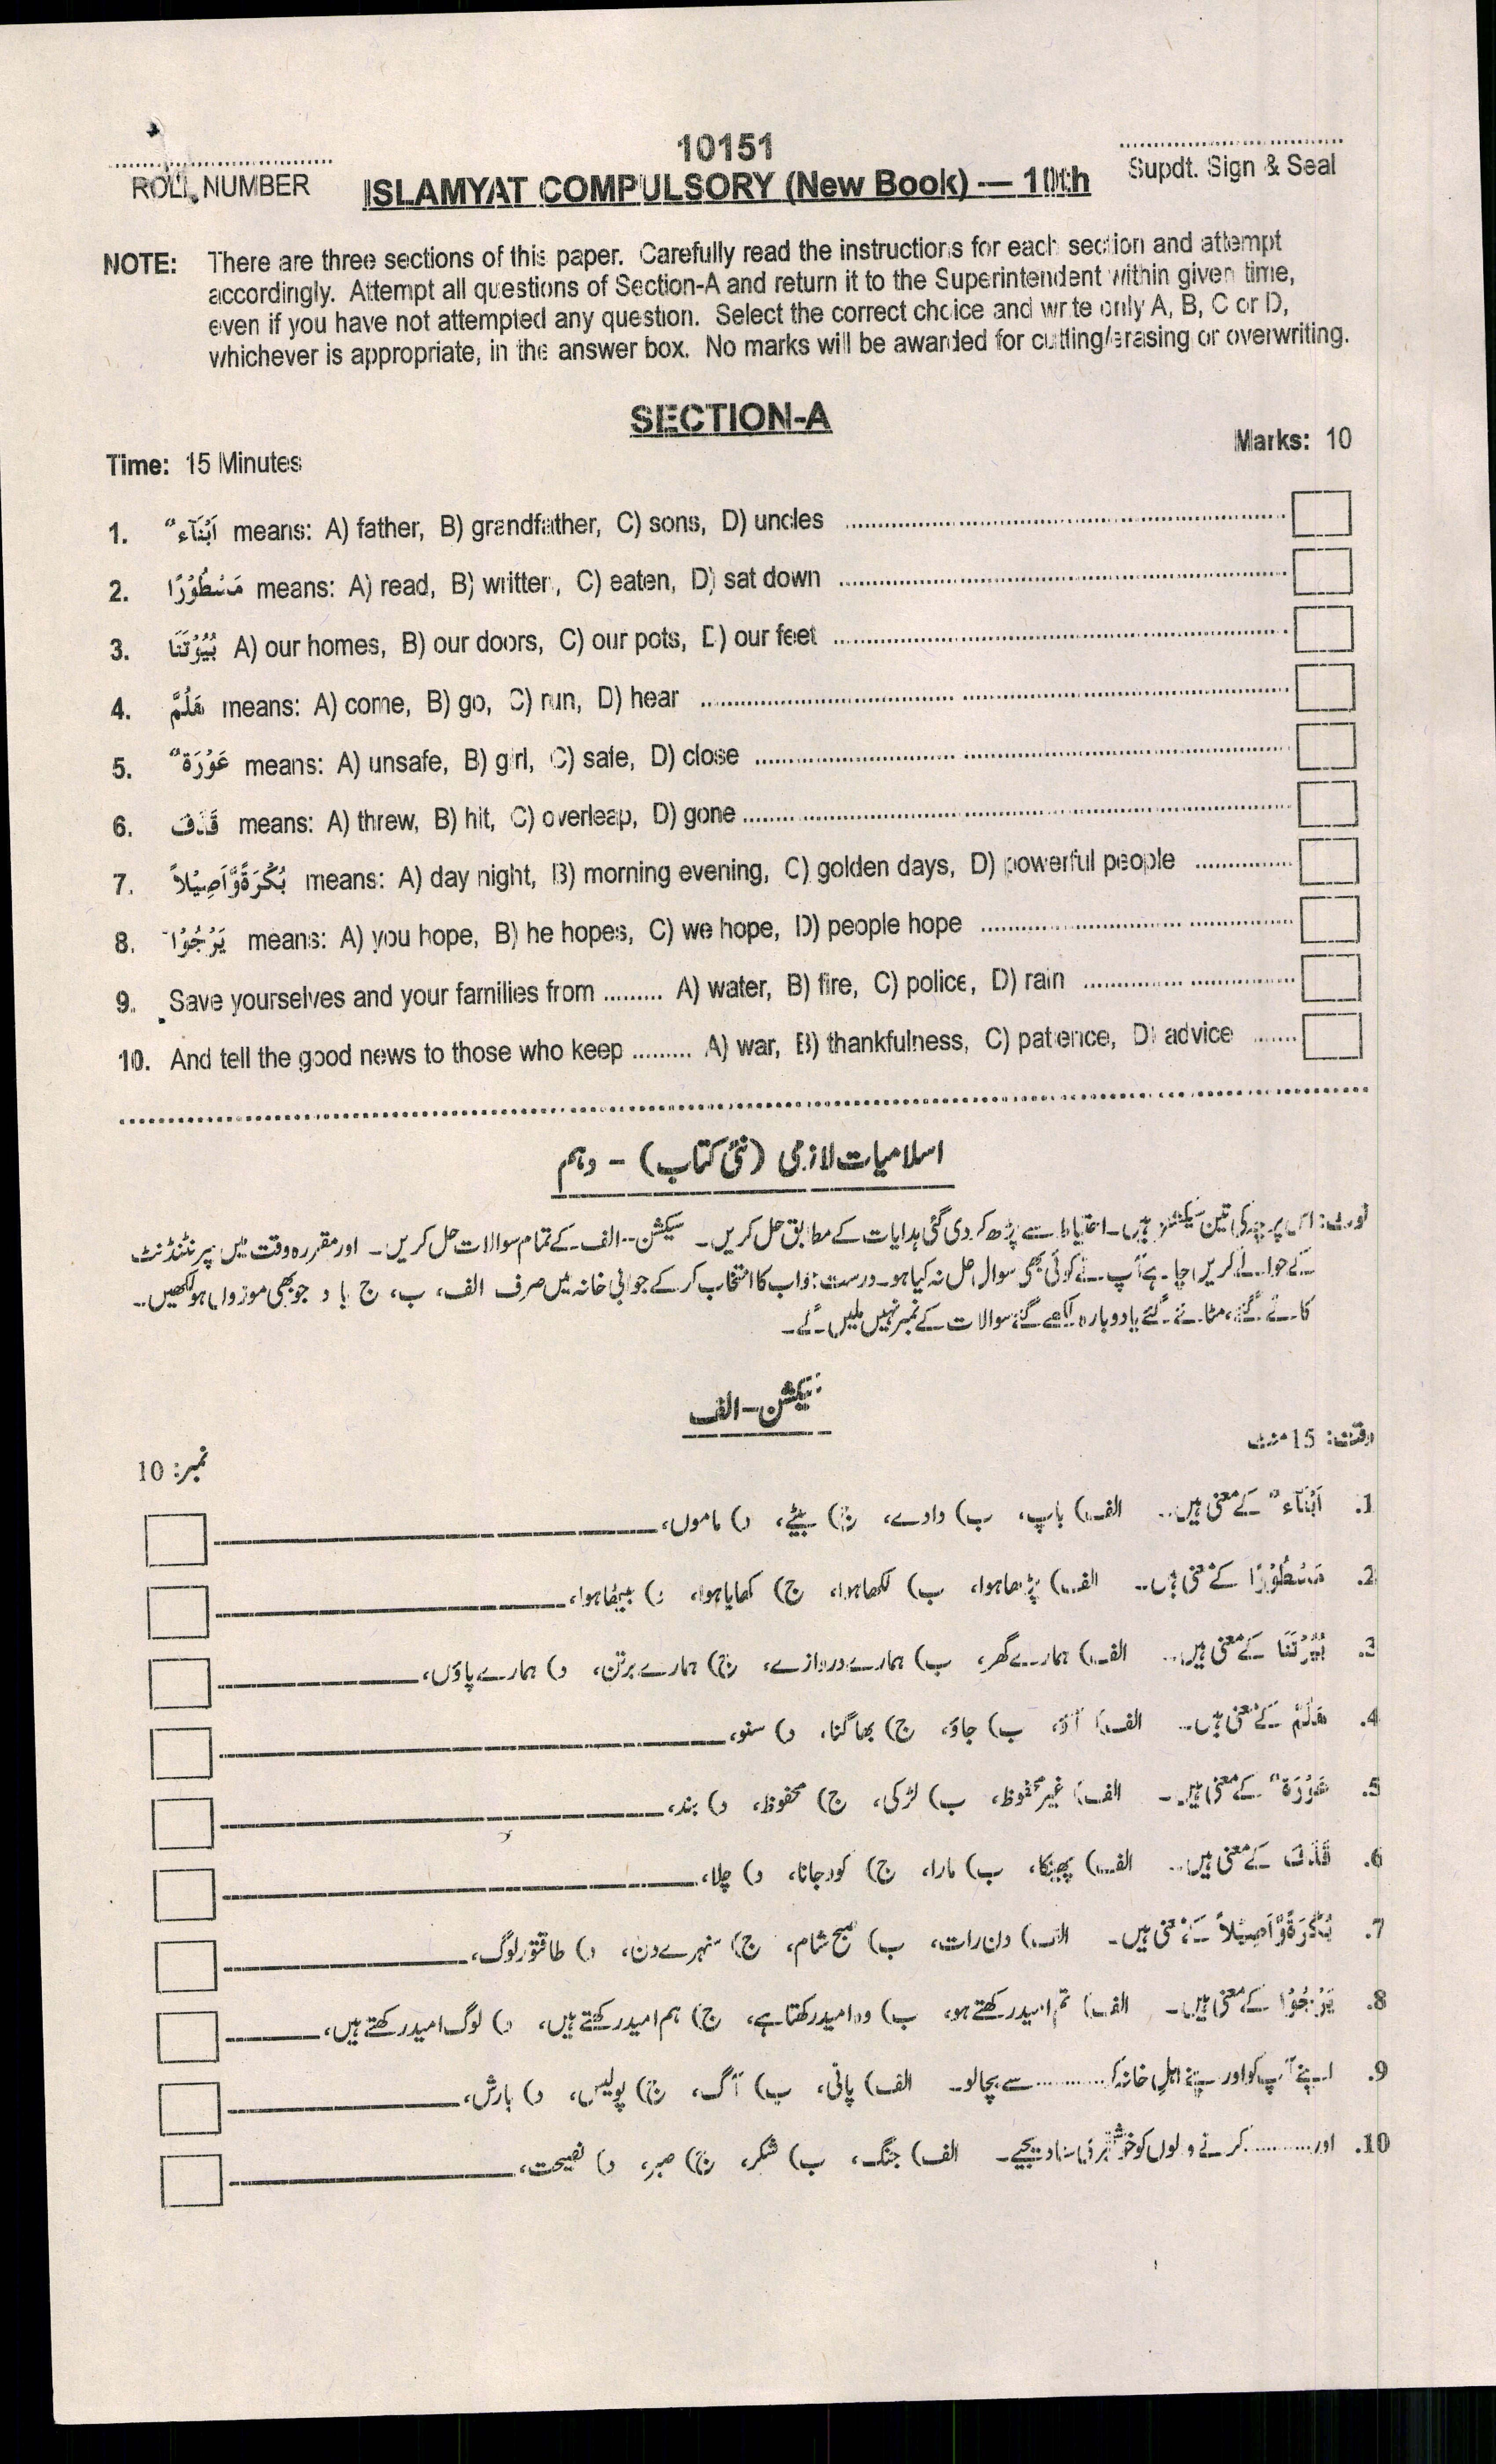 10151
ROLL NUMBER
ISLAMYAT COMPULSORY (New Book) — 10th
Supdt. Sign & Seal
NOTE: There are three sections of this paper. Carefully read the instructions for each section and attempt
accordingly. Attempt all questions of Section-A and return it to the Superintendent within given time,
even if you have not attempted any question. Select the correct choice and write only A, B, C or D,
whichever is appropriate, in the answer box. No marks will be awarded for cutting/erasing or overwriting.
SECTION-A
Time: 15 Minutes
Marks: 10
1. اَبْنَآء ٌ means: A) father, B) grandfather, C) sons, D) uncles
2. مَسْطُوْرًا means: A) read, B) written, C) eaten, D) sat down
3. بُيُوْتَنَا A) our homes, B) our doors, C) our pots, D) our feet
4. هَلُمَّ means: A) come, B) go, C) run, D) hear
5. عَوْرَة ٌ means: A) unsafe, B) girl, C) safe, D) close
6. قَذَفَ means: A) threw, B) hit, C) overleap, D) gone
7. بُكْرَةًوَّاَصِيْلاً means: A) day night, B) morning evening, C) golden days, D) powerful people
8. يَرْجُوْا means: A) you hope, B) he hopes, C) we hope, D) people hope
9. Save yourselves and your families from ......... A) water, B) fire, C) police, D) rain
10. And tell the good news to those who keep ......... A) war, B) thankfulness, C) patience, D) advice
اسلامیات لازمی (نئی کتاب) - دہم
نوٹ: اس پرچہ کی تین سیکشنز ہیں۔ احتیاط سے پڑھ کر دی گئی ہدایات کے مطابق حل کریں۔ سیکشن-الف کے تمام سوالات حل کریں۔ اور مقررہ وقت میں سپرنٹنڈنٹ
کے حوالے کریں چاہے آپ نے کوئی بھی سوال حل نہ کیا ہو۔ درست جواب کا انتخاب کر کے جوابی خانہ میں صرف الف، ب، ج یا د جو بھی موزوں ہو لکھیں۔
کاٹے گئے، مٹائے گئے یا دوبارہ لکھے گئے سوالات کے نمبر نہیں ملیں گے۔
سیکشن-الف
وقت: 15 منٹ
نمبر: 10
1. اَبْنَآء ٌ کے معنی ہیں۔ الف) باپ، ب) دادے، ج) بیٹے، د) ماموں،
2. مَسْطُوْرًا کے معنی ہیں۔ الف) پڑھا ہوا، ب) لکھا ہوا، ج) کھایا ہوا، د) بیٹھا ہوا،
3. بُيُوْتَنَا کے معنی ہیں۔ الف) ہمارے گھر، ب) ہمارے دروازے، ج) ہمارے برتن، د) ہمارے پاؤں،
4. هَلُمَّ کے معنی ہیں۔ الف) آؤ، ب) جاؤ، ج) بھاگنا، د) سنو،
5. عَوْرَة ٌ کے معنی ہیں۔ الف) غیر محفوظ، ب) لڑکی، ج) محفوظ، د) بند،
6. قَذَفَ کے معنی ہیں۔ الف) پھینکا، ب) مارا، ج) کود جانا، د) چلا،
7. بُكْرَةًوَّاَصِيْلاً کے معنی ہیں۔ الف) دن رات، ب) صبح شام، ج) سنہرے دن، د) طاقتور لوگ،
8. يَرْجُوْا کے معنی ہیں۔ الف) تم امید رکھتے ہو، ب) وہ امید رکھتا ہے، ج) ہم امید رکھتے ہیں، د) لوگ امید رکھتے ہیں،
9. اپنے آپ کو اور اپنے اہل خانہ کو ......... سے بچا لو۔ الف) پانی، ب) آگ، ج) پولیس، د) بارش،
10. اور ......... کرنے والوں کو خوشخبری سنا دیجیے۔ الف) جنگ، ب) شکر، ج) صبر، د) نصیحت،